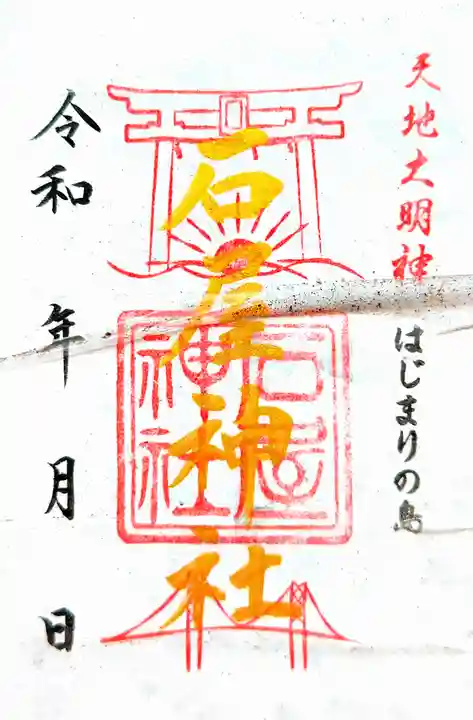 天地大明神
はじまりの島
石屋神社
石屋
神社
令和 年 月 日